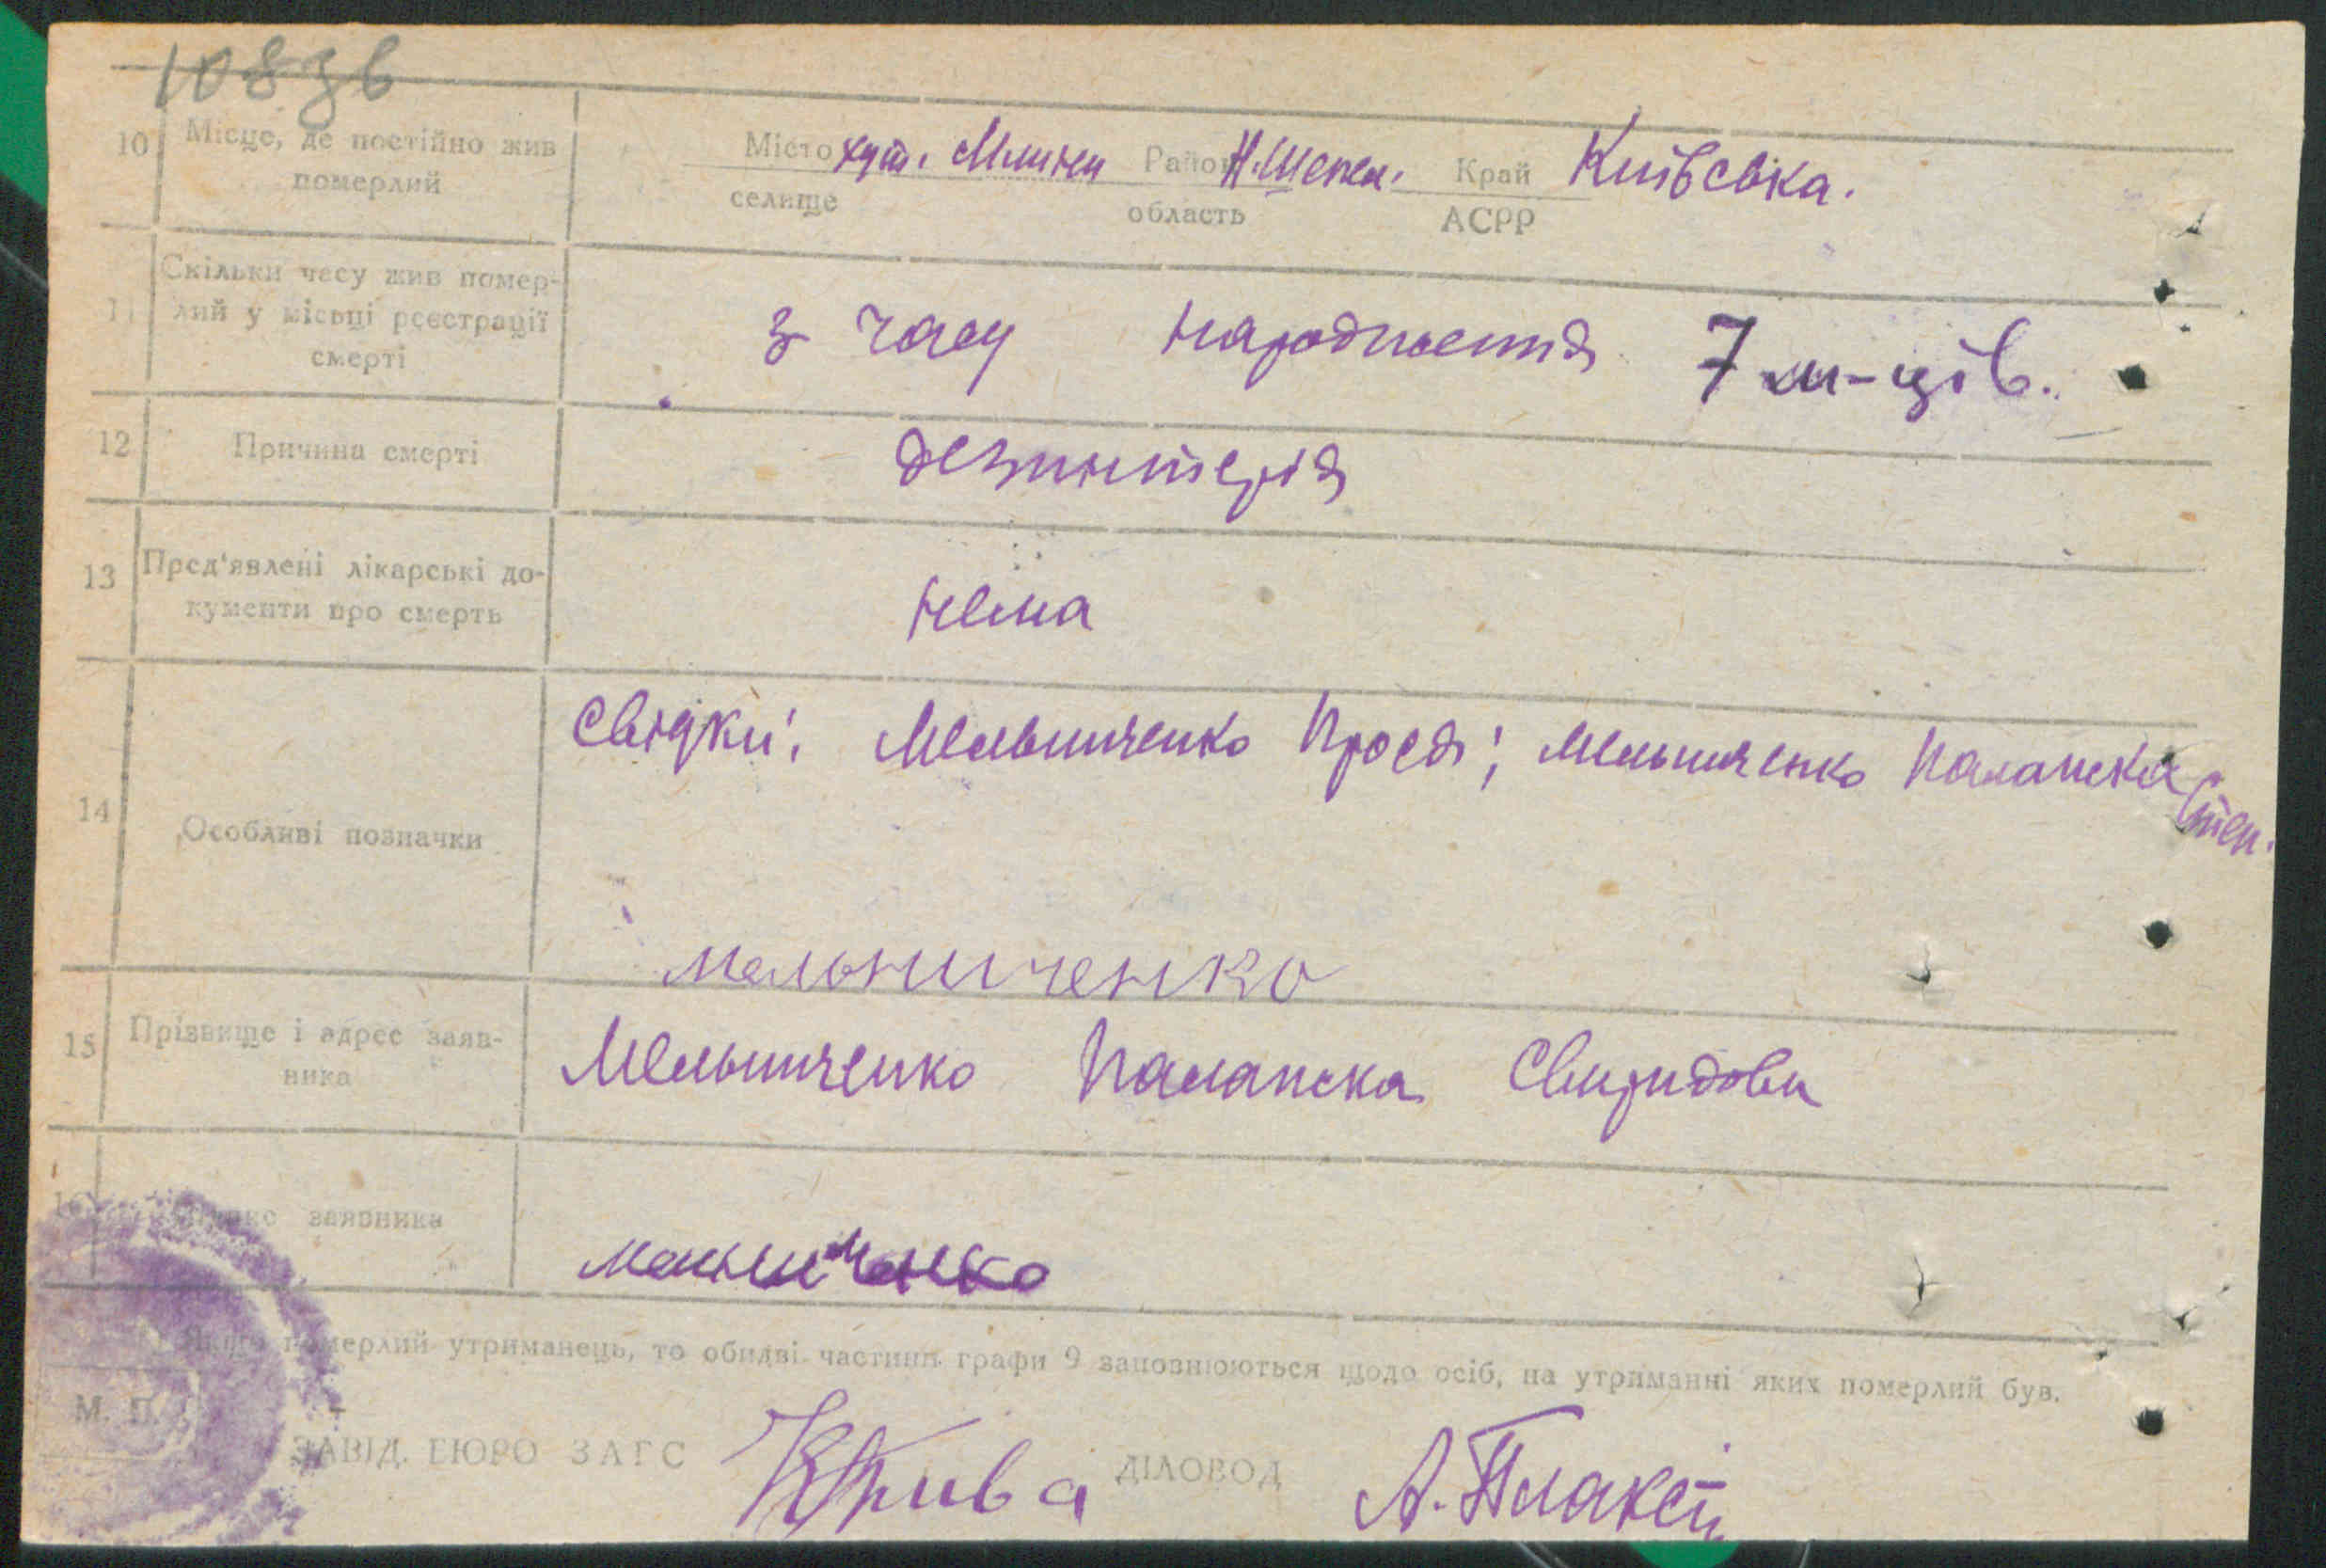 108 зв
10 Місце, де постійно жив померлий
Місто хут. Млини Район Н.Шепел. Край Київська.
селище область АСРР
11 Скільки чесу жив помер-
лий у місьці реєстрації
смерті
з часу народження 7 м-ців.
12 Причина смерті дезинтерія
13 Пред'явлені лікарські до-
кументи про смерть
нема
14 Особливі позначки
Свідки: Мельниченко Прося; Мельниченко Палажка Степ.
мельниченко
15 Прізвище і адрес заяв-
ника
Мельниченко Палажка Свиридовн
16 Підпис заявника
мельниченко
Якщо померлий утриманець, то обидві частини графи 9 заповнюються щодо осіб, на утриманні яких померлий був.
М. П.
ЗАВІД. БЮРО ЗАГС Крива ДІЛОВОД